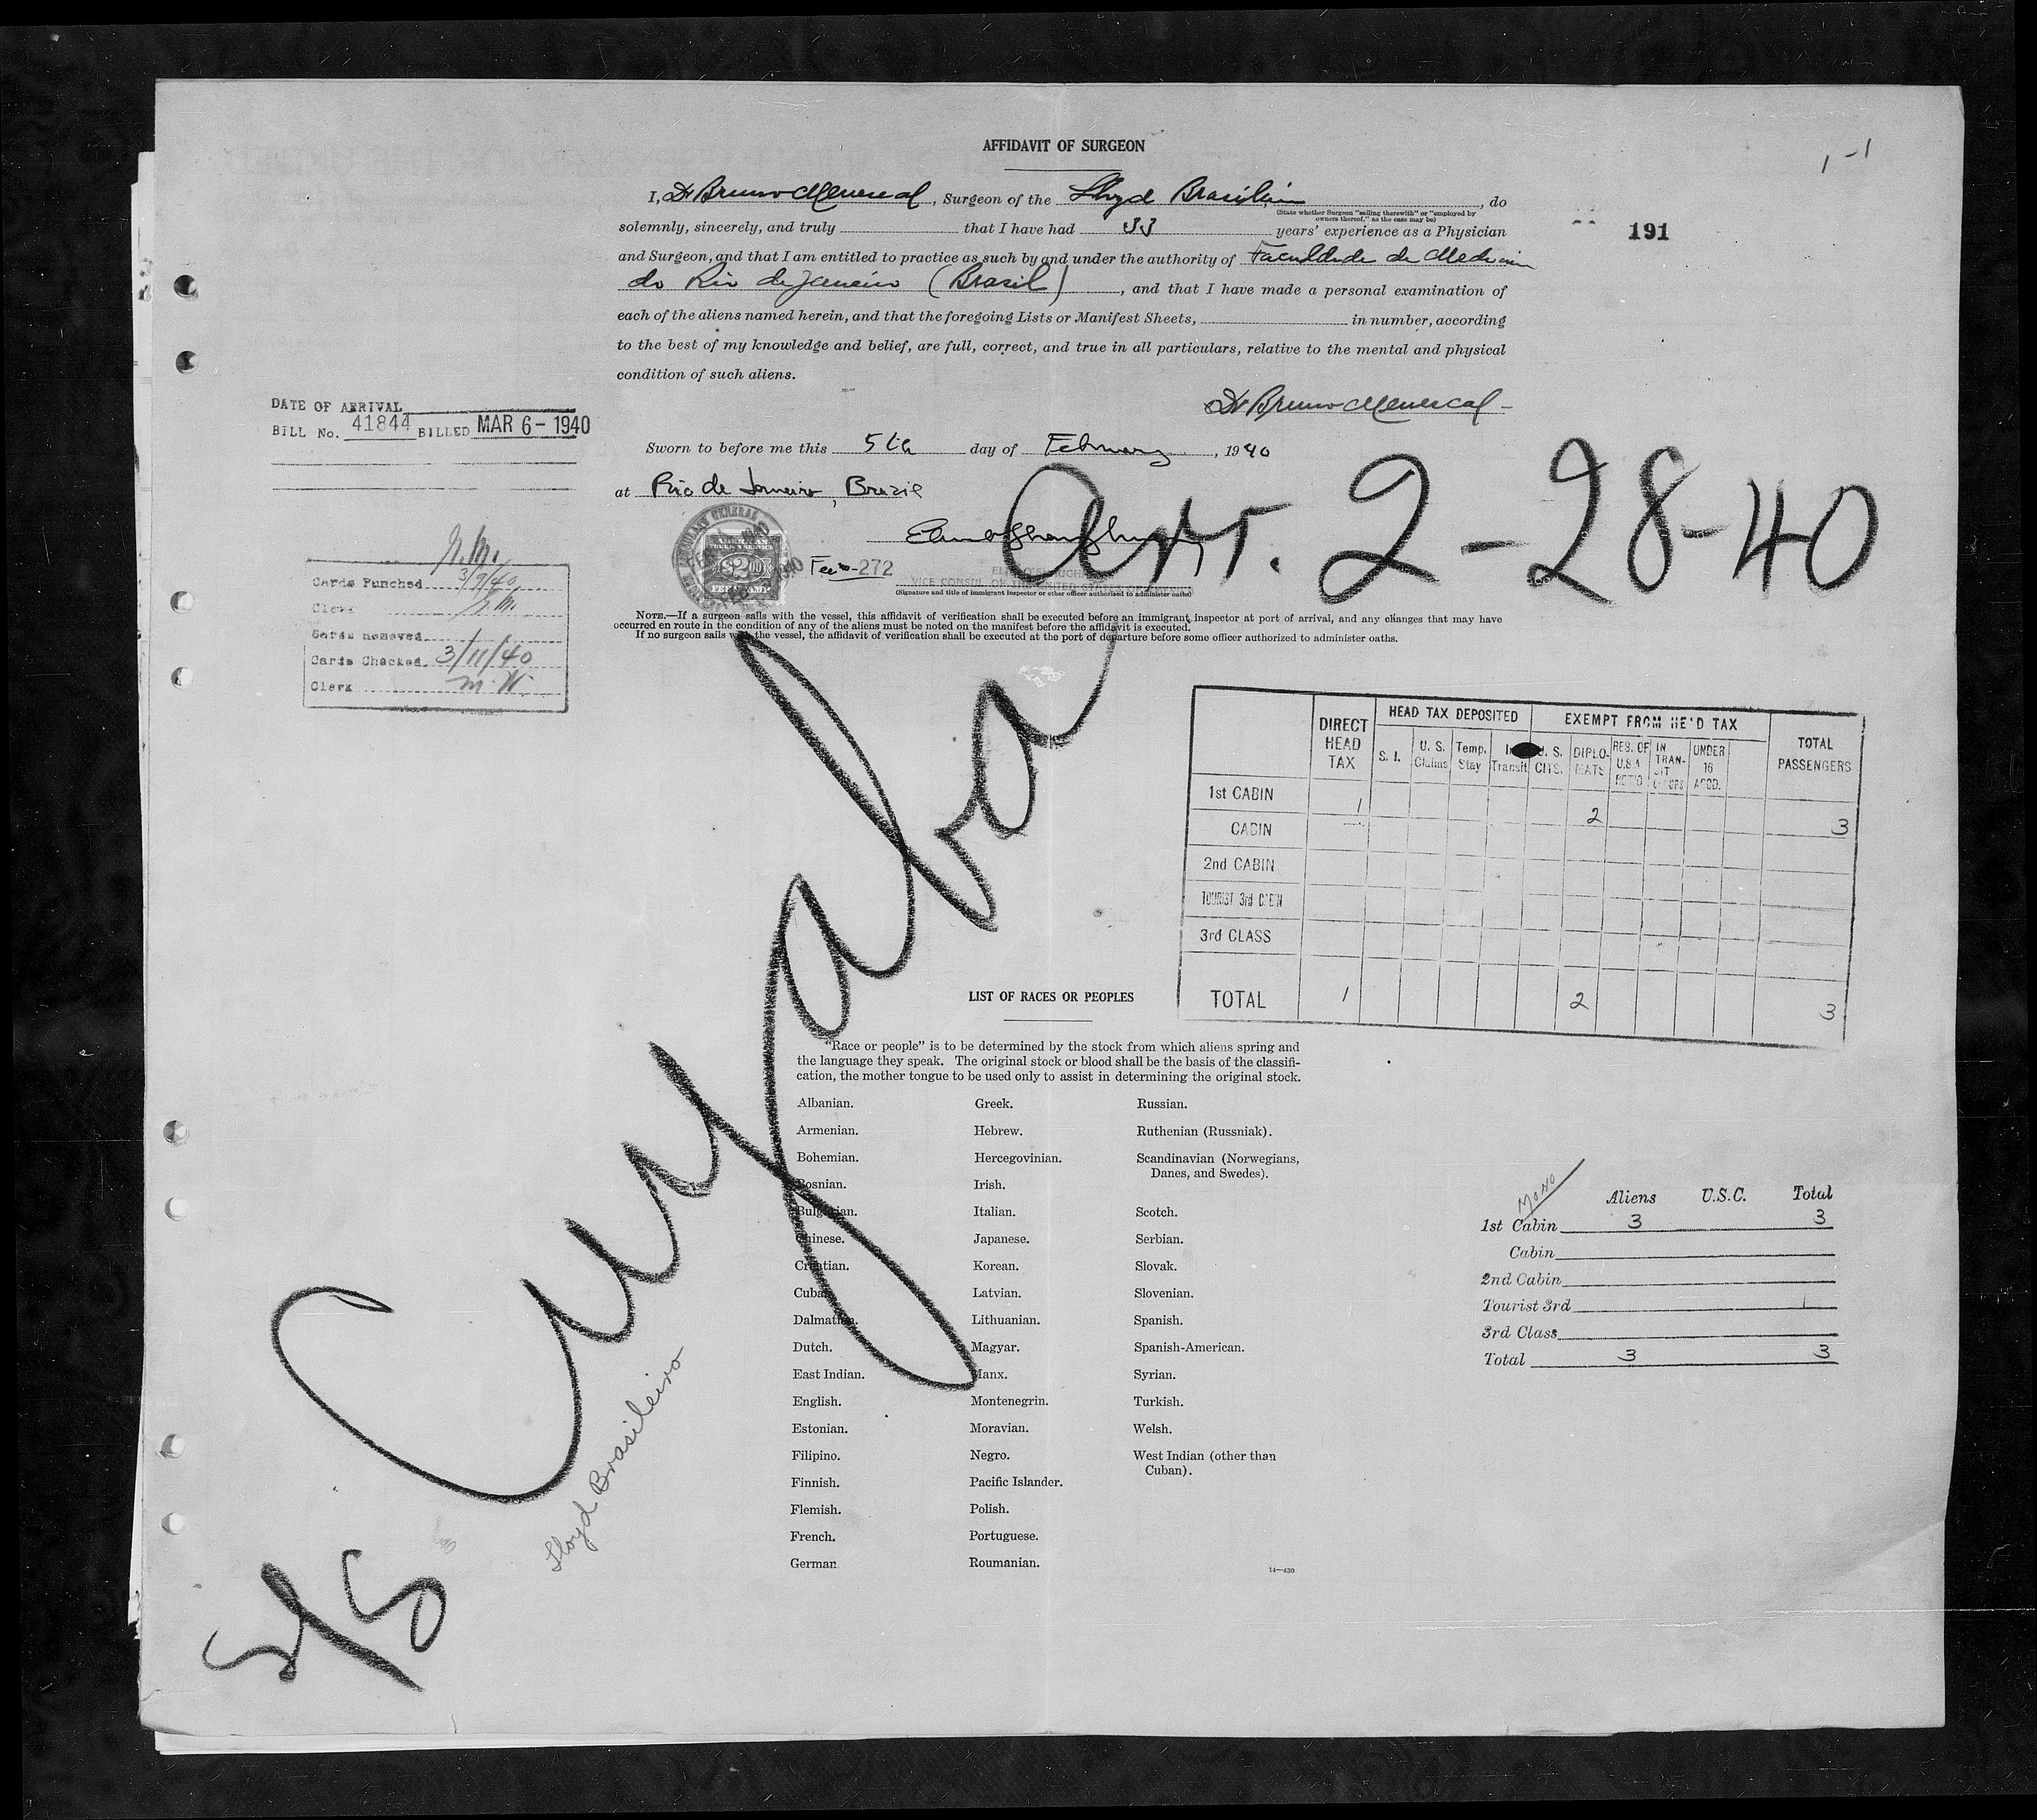 AFFIDAVIT OF SURGEON
1-1
I, Dr Bruno Menescal, Surgeon of the Lloyd Brasileiro, do
(State whether Surgeon "sailing therewith" or "employed by
owners thereof," as the case may be)
191
solemnly, sincerely, and truly that I have had 33 years' experience as a Physician
and Surgeon, and that I am entitled to practice as such by and under the authority of Faculdade de Medicina
do Rio de Janeiro (Brasil), and that I have made a personal examination of
each of the aliens named herein, and that the foregoing Lists or Manifest Sheets, in number, according
to the best of my knowledge and belief, are full, correct, and true in all particulars, relative to the mental and physical
condition of such aliens.
Dr Bruno Menescal
DATE OF ARRIVAL
BILL No. 41844 BILLED MAR 6-1940
Sworn to before me this 5th day of February, 1940
at Rio de Janeiro, Brazil
Arr. 2-28-40
$2.00
272
VICE CONSUL OF THE UNITED STATES
(Signature and title of immigrant inspector or other officer authorized to administer oaths)
NOTE.—If a surgeon sails with the vessel, this affidavit of verification shall be executed before an immigrant inspector at port of arrival, and any changes that may have
occurred en route in the condition of any of the aliens must be noted on the manifest before the affidavit is executed.
If no surgeon sails with the vessel, the affidavit of verification shall be executed at the port of departure before some officer authorized to administer oaths.
Cards Punched 3/9/40
Clerk
Cards Removed
Cards Checked 3/11/40
Clerk M.W.
DIRECT HEAD TAX
HEAD TAX DEPOSITED
EXEMPT FROM HE'D TAX
TOTAL PASSENGERS
S. I.
U. S. Claims
Temp. Stay
In Transit
U. S. CITS.
DIPLO-MATS
RES. OF U.S.A
IN TRAN-SIT
UNDER 16
1st CABIN 1 2 3
CABIN
2nd CABIN
TOURIST 3rd CABIN
3rd CLASS
TOTAL 1 2 3
S/S Cuyaba
Lloyd Brasileiro
LIST OF RACES OR PEOPLES
"Race or people" is to be determined by the stock from which aliens spring and
the language they speak. The original stock or blood shall be the basis of the classifi-
cation, the mother tongue to be used only to assist in determining the original stock.
Albanian.
Armenian.
Bohemian.
Bosnian.
Bulgarian.
Chinese.
Croatian.
Cuban.
Dalmatian.
Dutch.
East Indian.
English.
Estonian.
Filipino.
Finnish.
Flemish.
French.
German
Greek.
Hebrew.
Hercegovinian.
Irish.
Italian.
Japanese.
Korean.
Latvian.
Lithuanian.
Magyar.
Manx.
Montenegrin.
Moravian.
Negro.
Pacific Islander.
Polish.
Portuguese.
Roumanian.
Russian.
Ruthenian (Russniak).
Scandinavian (Norwegians,
Danes, and Swedes).
Scotch.
Serbian.
Slovak.
Slovenian.
Spanish.
Spanish-American.
Syrian.
Turkish.
Welsh.
West Indian (other than
Cuban).
14—430
MONO
Aliens U.S.C. Total
1st Cabin 3 3
Cabin
2nd Cabin
Tourist 3rd
3rd Class
Total 3 3